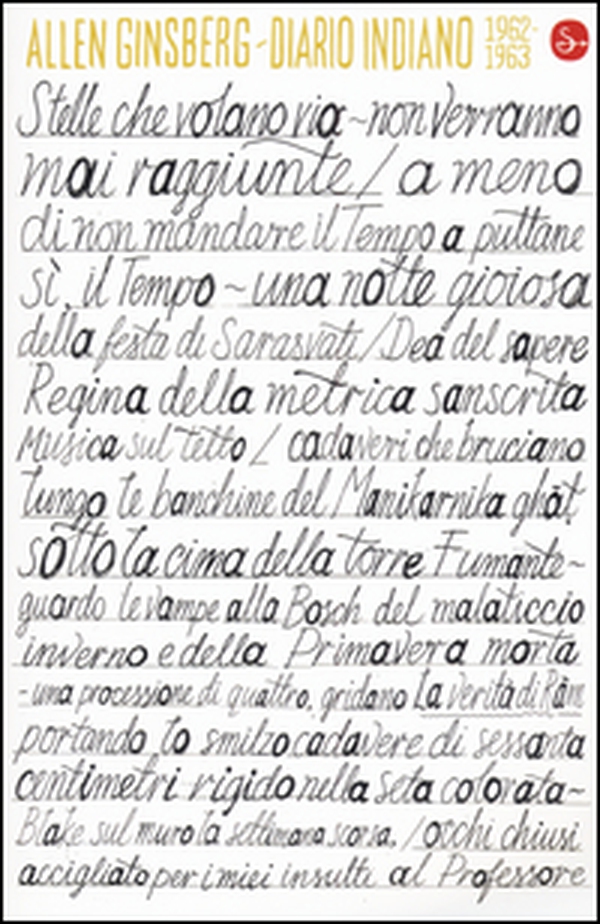 ALLEN GINSBERG - DIARIO INDIANO 1962-1963
Stelle che volano via ~ non verranno
mai raggiunte / a meno
di non mandare il Tempo a puttane
sì, il Tempo ~ una notte gioiosa
della festa di Sarasvati / Dea del sapere
Regina della metrica sanscrita
Musica sul tetto / cadaveri che bruciano
lungo le banchine del Manikarnika ghāt
sotto la cima della torre Fumante ~
guardo le vampe alla Bosch del malaticcio
inverno e della Primavera morta
- una processione di quattro, gridano La verità di Rām
portando lo smilzo cadavere di sessanta
centimetri rigido nella seta colorata ~
Blake sul muro la settimana scorsa, / occhi chiusi
accigliato per i miei insulti al Professore